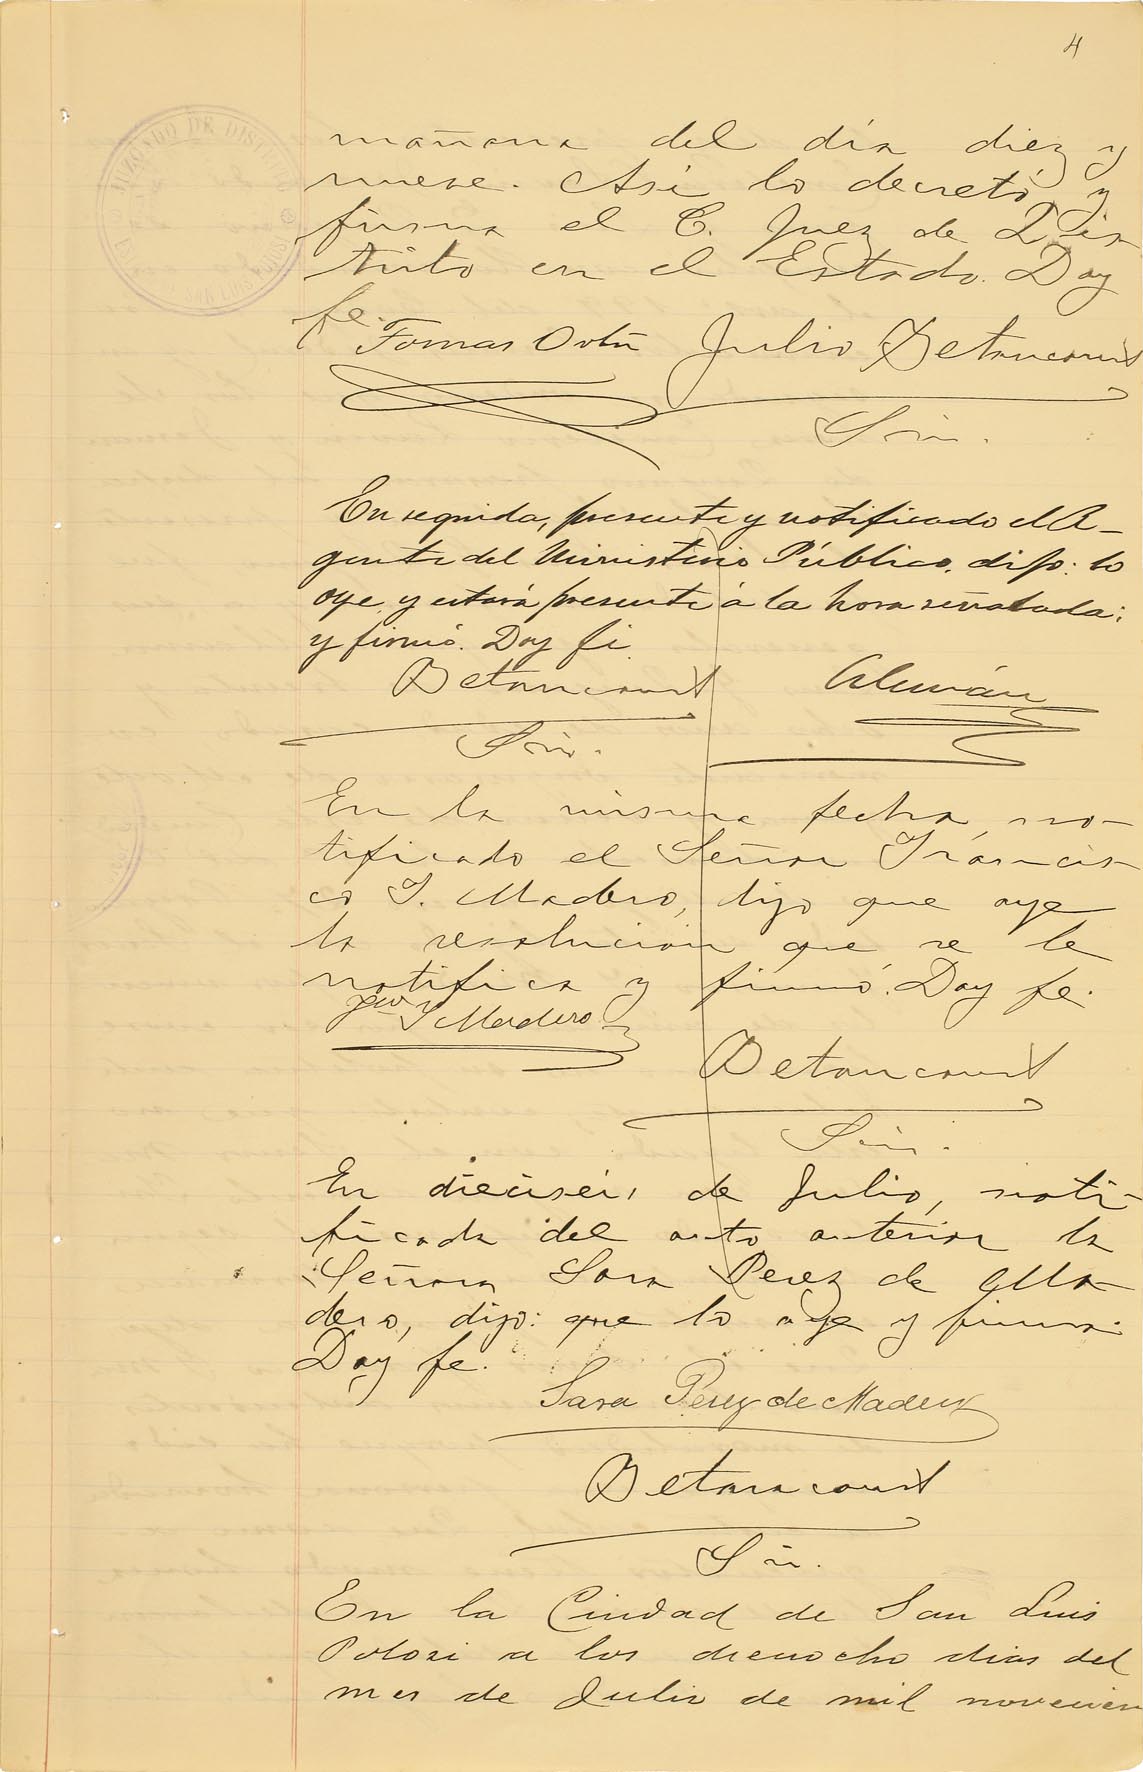 4
JUZGADO DE DISTRITO
SAN LUIS POTOSI
mañana del día diez y
nueve. Así lo decretó y
firma el C. Juez de Dis-
trito en el Estado. Doy
fe.
Tomas Ortiz Julio Betancourt
Srio.
En seguida, presente y notificado el A-
gente del Ministerio Público, dijo: lo
oye y estará presente á la hora señalada;
y firmó. Doy fé
Betancourt Alemán
Srio.
En la misma fecha, no-
tificado el Señor Francis-
co I. Madero, dijo que oye
la resolución que se le
notifica y firmó. Doy fe.
Fco I Madero
Betancourt
Srio.
En dieciséis de Julio, noti-
ficada del auto anterior la
Señora Sara Perez de Ma-
dero, dijo: que lo oye y firma.
Doy fe.
Sara Perez de Madero
Betancourt
Srio.
En la Ciudad de San Luis
Potosi a los dieciocho dias del
mes de Julio de mil novecien